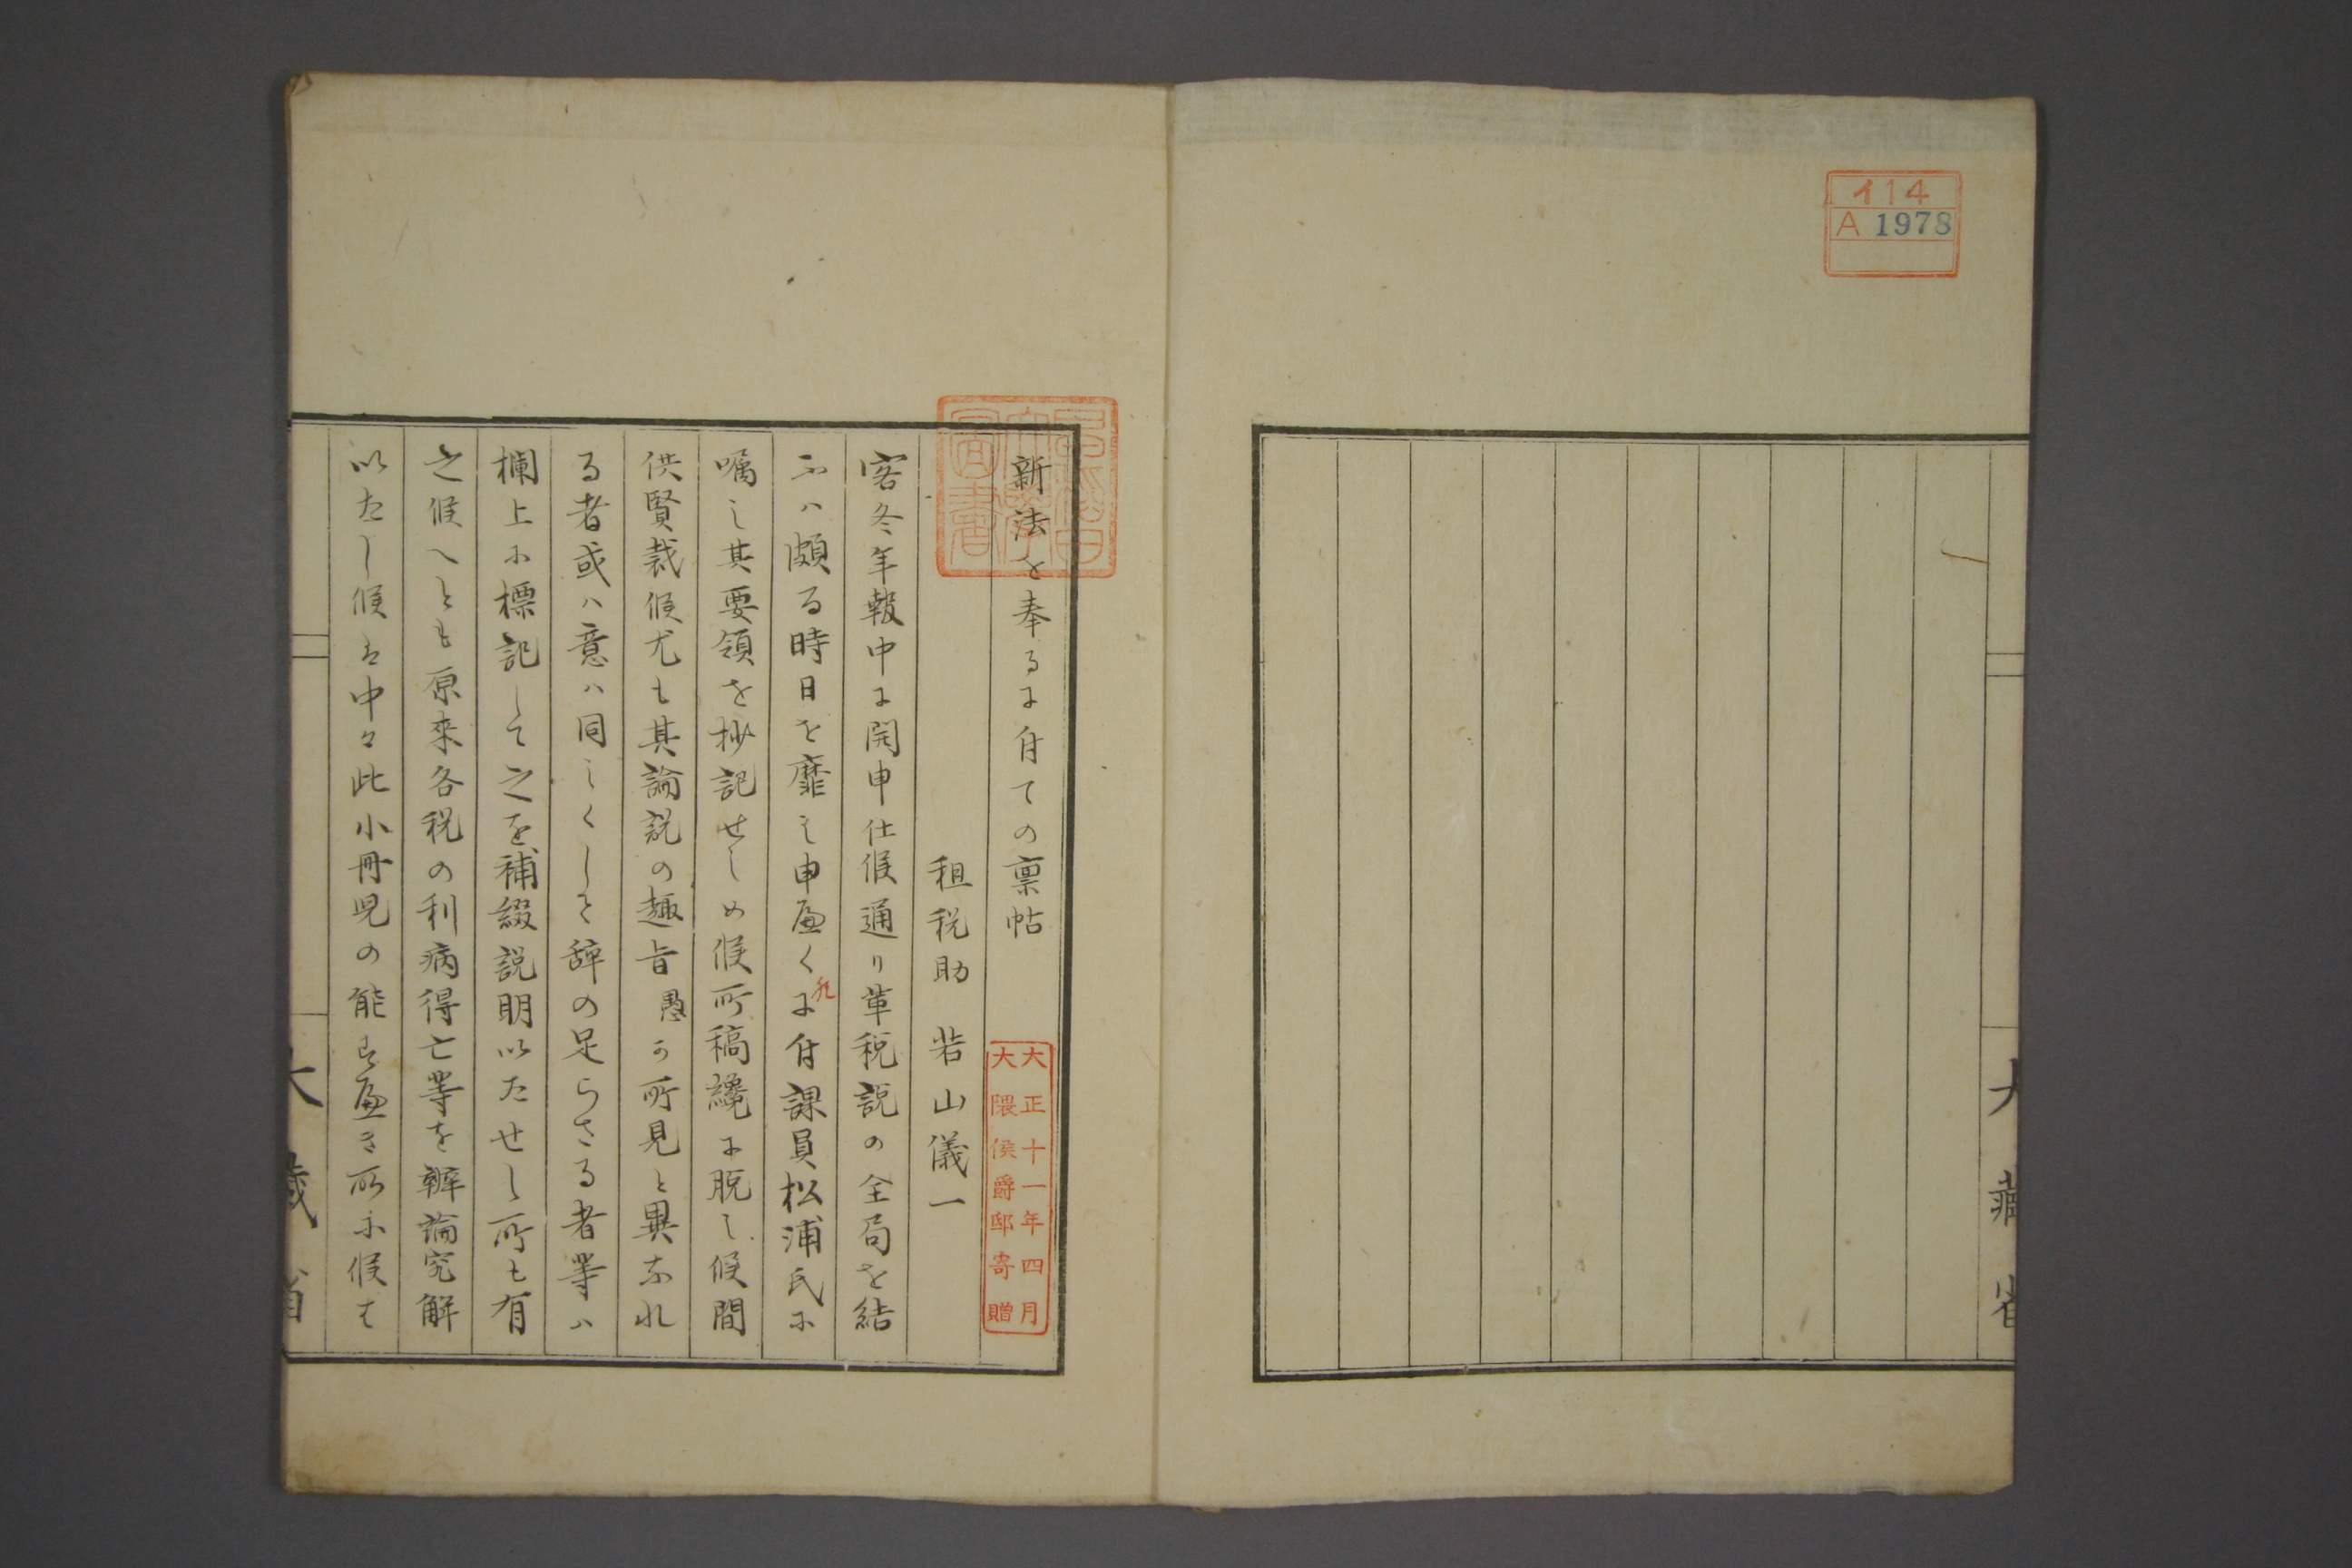 イ14
A 1978
大藏省
早稲田大学図書
新法を奉るに付ての稟帖
租税助 若山儀一
大正十一年四月
大隈侯爵邸寄贈
客冬年報中に開申仕候通り革税説の全局を結
ふハ頗る時日を靡し申へく候に付課員松浦氏に
嘱し其要領を抄記せしめ候所稿纔に脱し候間
供賢裁候尤も其論説の趣旨愚か所見と異なれ
る者或ハ意ハ同しくして辞の足らさる者等ハ
欄上に標記して之を補綴説明いたせし所も有
之候へとも原来各税の利病得亡等を辨論究解
いたし候は中々此小冊児の能すへき所に候は
大藏省